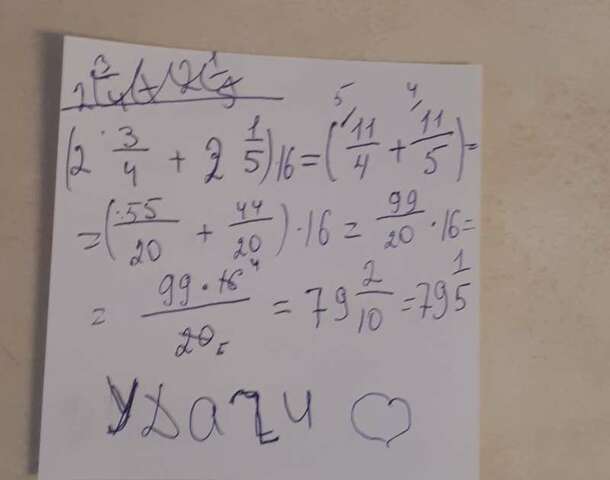 (2 3/4 + 2 1/5)·16 = (11/4 + 11/5) =
= (55/20 + 44/20)·16 = 99/20·16 =
= 99·16/20 = 79 2/10 = 79 1/5
Удачи ♡